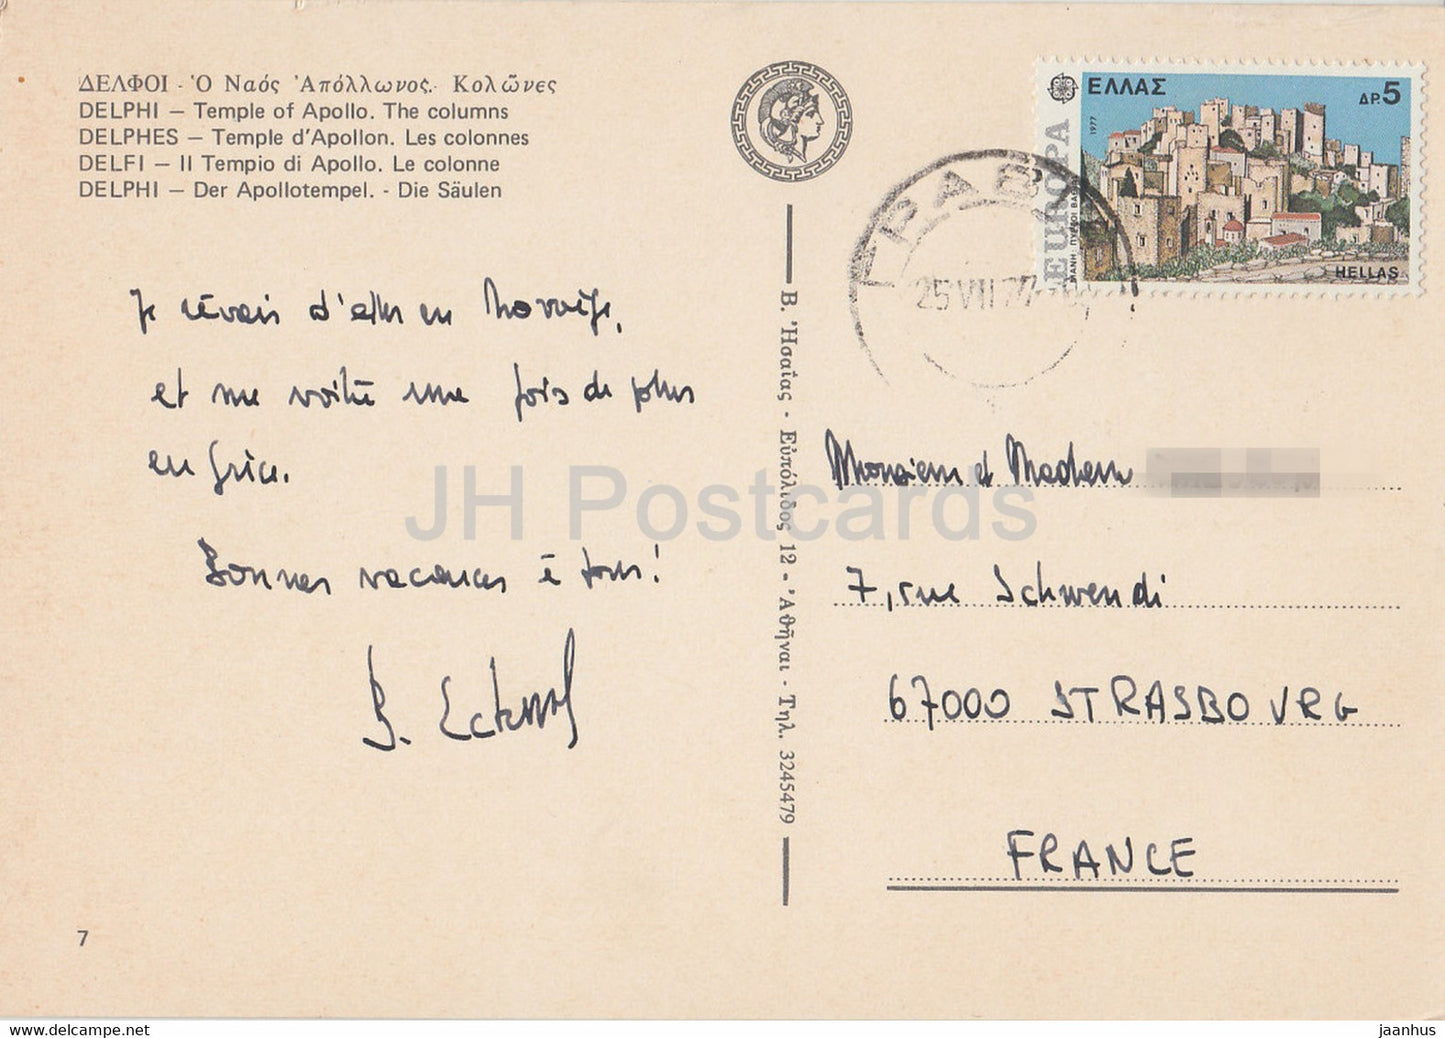 ΔΕΛΦΟΙ - Ὁ Ναός Ἀπόλλωνος. Κολῶνες
DELPHI — Temple of Apollo. The columns
DELPHES — Temple d'Apollon. Les colonnes
DELFI — Il Tempio di Apollo. Le colonne
DELPHI — Der Apollotempel. - Die Säulen
Je rêvais d'aller en Norvège,
et me voilà une fois de plus
en Grèce.
Bonnes vacances à tous!
B.
7
Β. Ἠσαΐας - Εὐπόλιδος 12 - Ἀθῆναι - Τηλ. 3245479
EUROPA
ΕΛΛΑΣ
ΔΡ.5
1977
HELLAS
ΓΡΑΒ
25 VII 77
Monsieur et Madame
7, rue Schwendi
67000 STRASBOURG
FRANCE
JH Postcards
www.delcampe.net
jaanhus